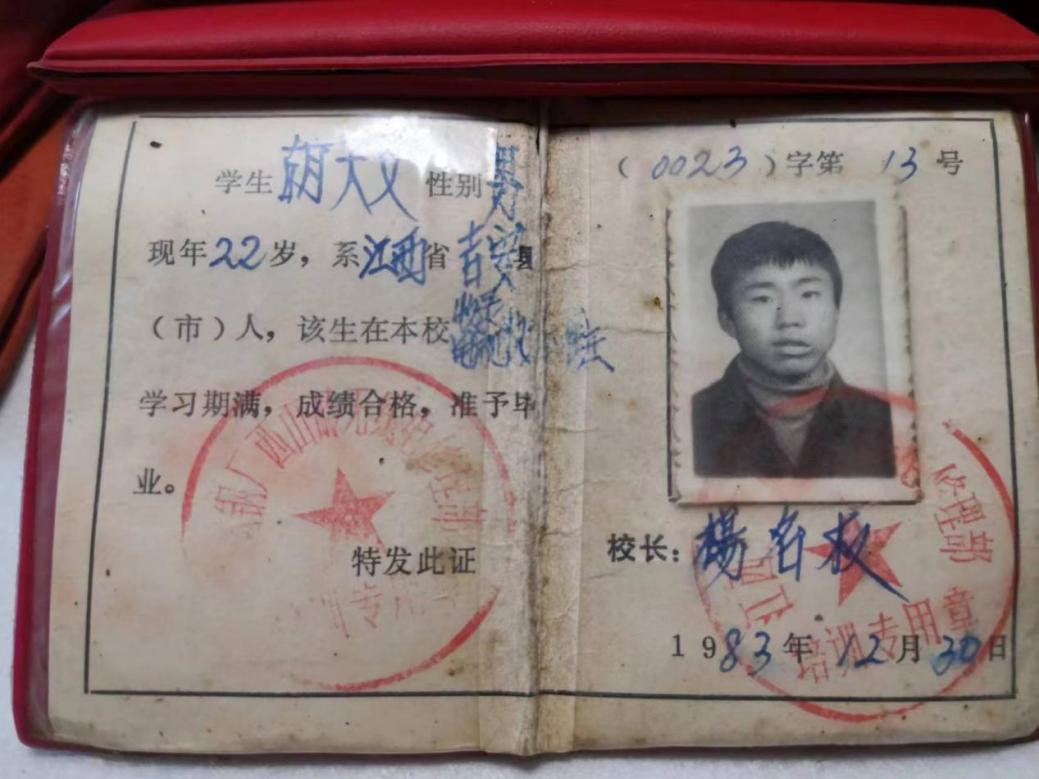 学生 胡大义 性别 男
现年22岁，系江西省 吉安 县
（市）人，该生在本校
学习期满，成绩合格，准予毕
业。
特发此证
（0023）字第 13 号
校长：楊名权
1983年12月30日
修理部
培训专用章